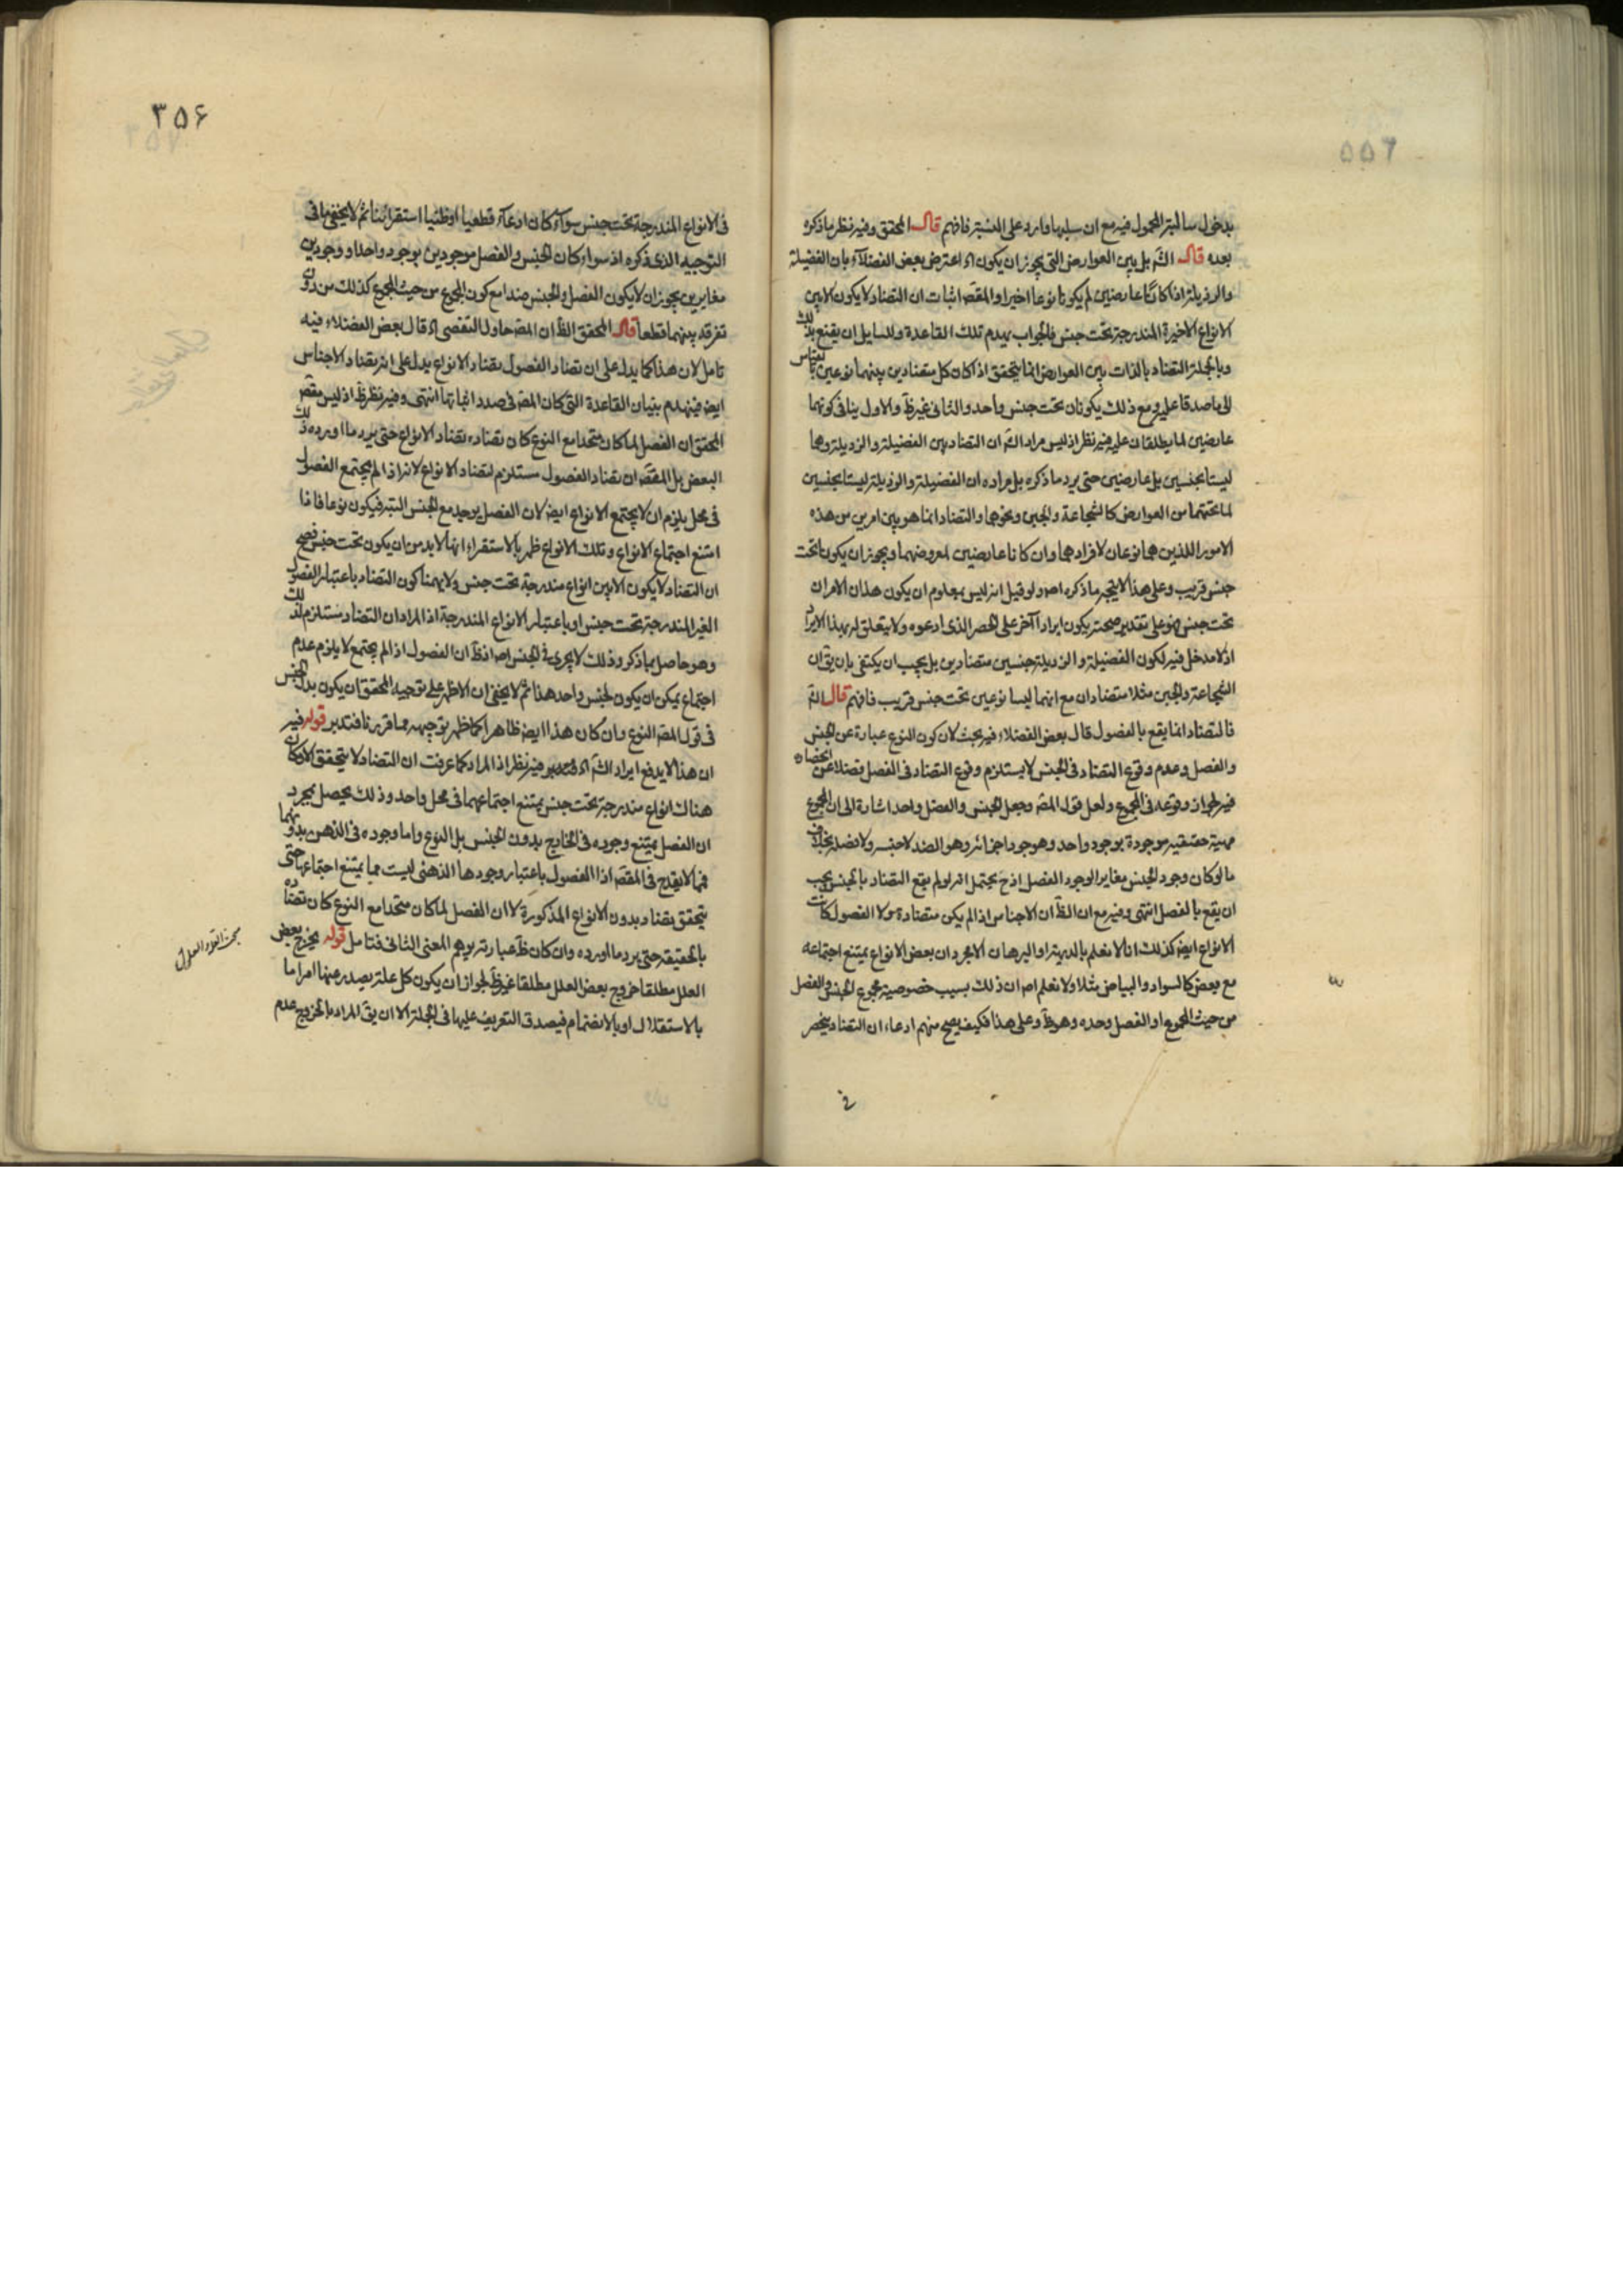 بدخول سالبة المحمول فيه مع ان سلبها وارد على النسبة فافهم قال المحقق وفيه نظر ما ذكره
بعده قال الشّه بل بين العوارض التى يجوز ان يكون اه اعترض بعض الفضلآء بان الفضيلة
والرذيلة اذا كانتا عارضين لم يكونا نوعا اخيرا والمقصّ اثبات ان التضاد لا يكون الا بين
الانواع الاخيرة المندرجة تحت جنس فالجواب يهدم تلك القاعدة وللسايل ان يقنع بذلك
وبالجملة التضاد بالذات بين العوارض انما يتحقق اذا كان كل متضادين بينهما نوعين بالقياس
الى ما صدقا عليه ومع ذلك يكونان تحت جنس واحد والثانى غير ظّ والاول ينافى كونهما
عارضين لما يطلقان عليه فيه نظر اذ ليس مراد الشّه ان التضاد بين الفضيلة والرذيلة وهما
ليستا بجنسين بل عارضين حتى يرد ما ذكره بل مراده ان الفضيلة والرذيلة ليستا بجنسين
لما تحتهما من العوارض كالشجاعة والجبن ونحوهما والتضاد انما هو بين امرين من هذه
الامور اللذين هما نوعان لافرادهما وان كانا عارضين لمعروضهما ويجوز ان يكونا تحت
جنس قريب وعلى هذا لا يتجه ما ذكره اصلا ولو قيل انه ليس بمعلوم ان يكون هذان الامران
تحت جنس فهو على تقدير صحته يكون ايرادا آخر على الحصر الذى ادعوه ولا يتعلق له بهذا الايراد
اذ لا مدخل فيه لكون الفضيلة والرذيلة جنسين متضادين بل يجب ان يكتفى بان يقّ ان
الشجاعة والجبن مثلا متضادان مع انهما ليسا نوعين تحت جنس قريب فافهم قال الشّه
فالتضاد انما يقع بالفصول قال بعض الفضلاء فيه بحث لان كون النوع عبارة عن الجنس
والفصل وعدم وقوع التضاد فى الجنس لا يستلزم وقوع التضاد فى الفصل فضلا عن انحصاره
فيه لجواز وقوعه فى المجموع ولعل قول المصّ وجعل الجنس والفصل واحد اشارة الى ان المجموع
مهية حقيقية موجودة بوجود واحد وهو وجود اجزائه وهو الضد لا جنسه ولا فصله بخلاف
ما لو كان وجود الجنس مغايرا لوجود الفصل اذ ح يحتمل انه لو لم يقع التضاد بالجنس يجب
ان يقع بالفصل انتهى وفيه مع ان الظّ ان الاجناس اذا لم يكن متضادة ولا الفصول كانت
الانواع ايضا كذلك انا لا نعلم بالبديهة او البرهان الا مجرد ان بعض الانواع يمتنع اجتماعه
مع بعض كالسواد والبياض مثلا ولا نعلم اصلا ان ذلك بسبب خصوصية مجموع الجنس والفصل
من حيث المجموع او الفصل وحده وهو ظّ وعلى هذا فكيف يصح منهم ادعاء ان التضاد ينحصر
فى
٣٥۶
فى الانواع المندرجة تحت جنس سوآء كان ادعآء قطعيا او ظنيا استقرائيا ثم لا يخفى ما فى
التوجيه الذى ذكره اذ سواء كان الجنس والفصل موجودين بوجود واحد او وجودين
مغايرين يجوز ان لا يكون الفصل والجنس ضدا مع كون المجموع من حيث المجموع كذلك من دون
تفرقة بينهما قطعا قال المحقق الظّ ان المصّ حاول التفصى اه قال بعض الفضلاء فيه
تامل لان هذا كما يدل على ان تضاد الفصول تضاد الانواع يدل على انه تضاد الاجناس
ايضا فينهدم بنيان القاعدة التى كان المصّ فى صدد اثباتها انتهى وفيه نظر ظّ اذ ليس مقصّ
المحقق ان الفصل لما كان متحدا مع النوع كان تضاده تضاد الانواع حتى يرد ما اورده ذلك
البعض بل المقصّ ان تضاد الفصول مستلزم لتضاد الانواع لانه اذا لم يجتمع الفصول
فى محل يلزم ان لا يجتمع الانواع ايضا لان الفصل يوجد مع الجنس البتة فيكون نوعا فاذا
امتنع اجتماع الانواع وتلك الانواع ظهر بالاستقراء انها لا بد من ان يكون تحت جنس فصح
ان التضاد لا يكون الا بين انواع مندرجة تحت جنس ولا يهمنا كون التضاد باعتبار الفصول
الغير المندرجة تحت جنس او باعتبار الانواع المندرجة اذ المراد ان التضاد مستلزم لذلك
وهو حاصل بما ذكر وذلك لا يجرى فى الجنس اصلا اذ ظّ ان الفصول اذا لم يجتمع لا يلزم عدم
اجتماع يمكن ان يكون لجنس واحد هذا ثم لا يخفى ان الاظهر على توجيه المحقق ان يكون بدل الجنس
فى قول المصّ النوع وان كان هذا ايضا ظاهرا كما ظهر توجيهه مما قررنا فتدبر قوله فيه
ان هذا لا يدفع ايراد الشّه اه فيه نظر اذ المراد كما عرفت ان التضاد لا يتحقق الا وكان
هناك انواع مندرجة تحت جنس يمتنع اجتماعهما فى محل واحد وذلك يحصل بمجرد
ان الفصل يمتنع وجوده فى الخارج بدون الجنس بل النوع واما وجوده فى الذهن بدونهما
فمما لا يقدح فى المقصّ اذ الفصول باعتبار وجودها الذهنى ليست مما يمتنع اجتماعها حتى
يتحقق تضاد بدون الانواع المذكورة لا ان الفصل لما كان متحدا مع النوع كان تضاده
بالحقيقة حتى يرد ما اورده وان كان ظّ عبارته يوهم المعنى الثانى فتامل قوله يخرج بعض
العلل مطلقا خروج بعض العلل مطلقا غير ظّ لجواز ان يكون كل علة يصدر عنها امر اما
بالاستقلال او بالانضمام فيصدق التعريف عليها فى الجملة الا ان يقّ المراد بالخروج عدم